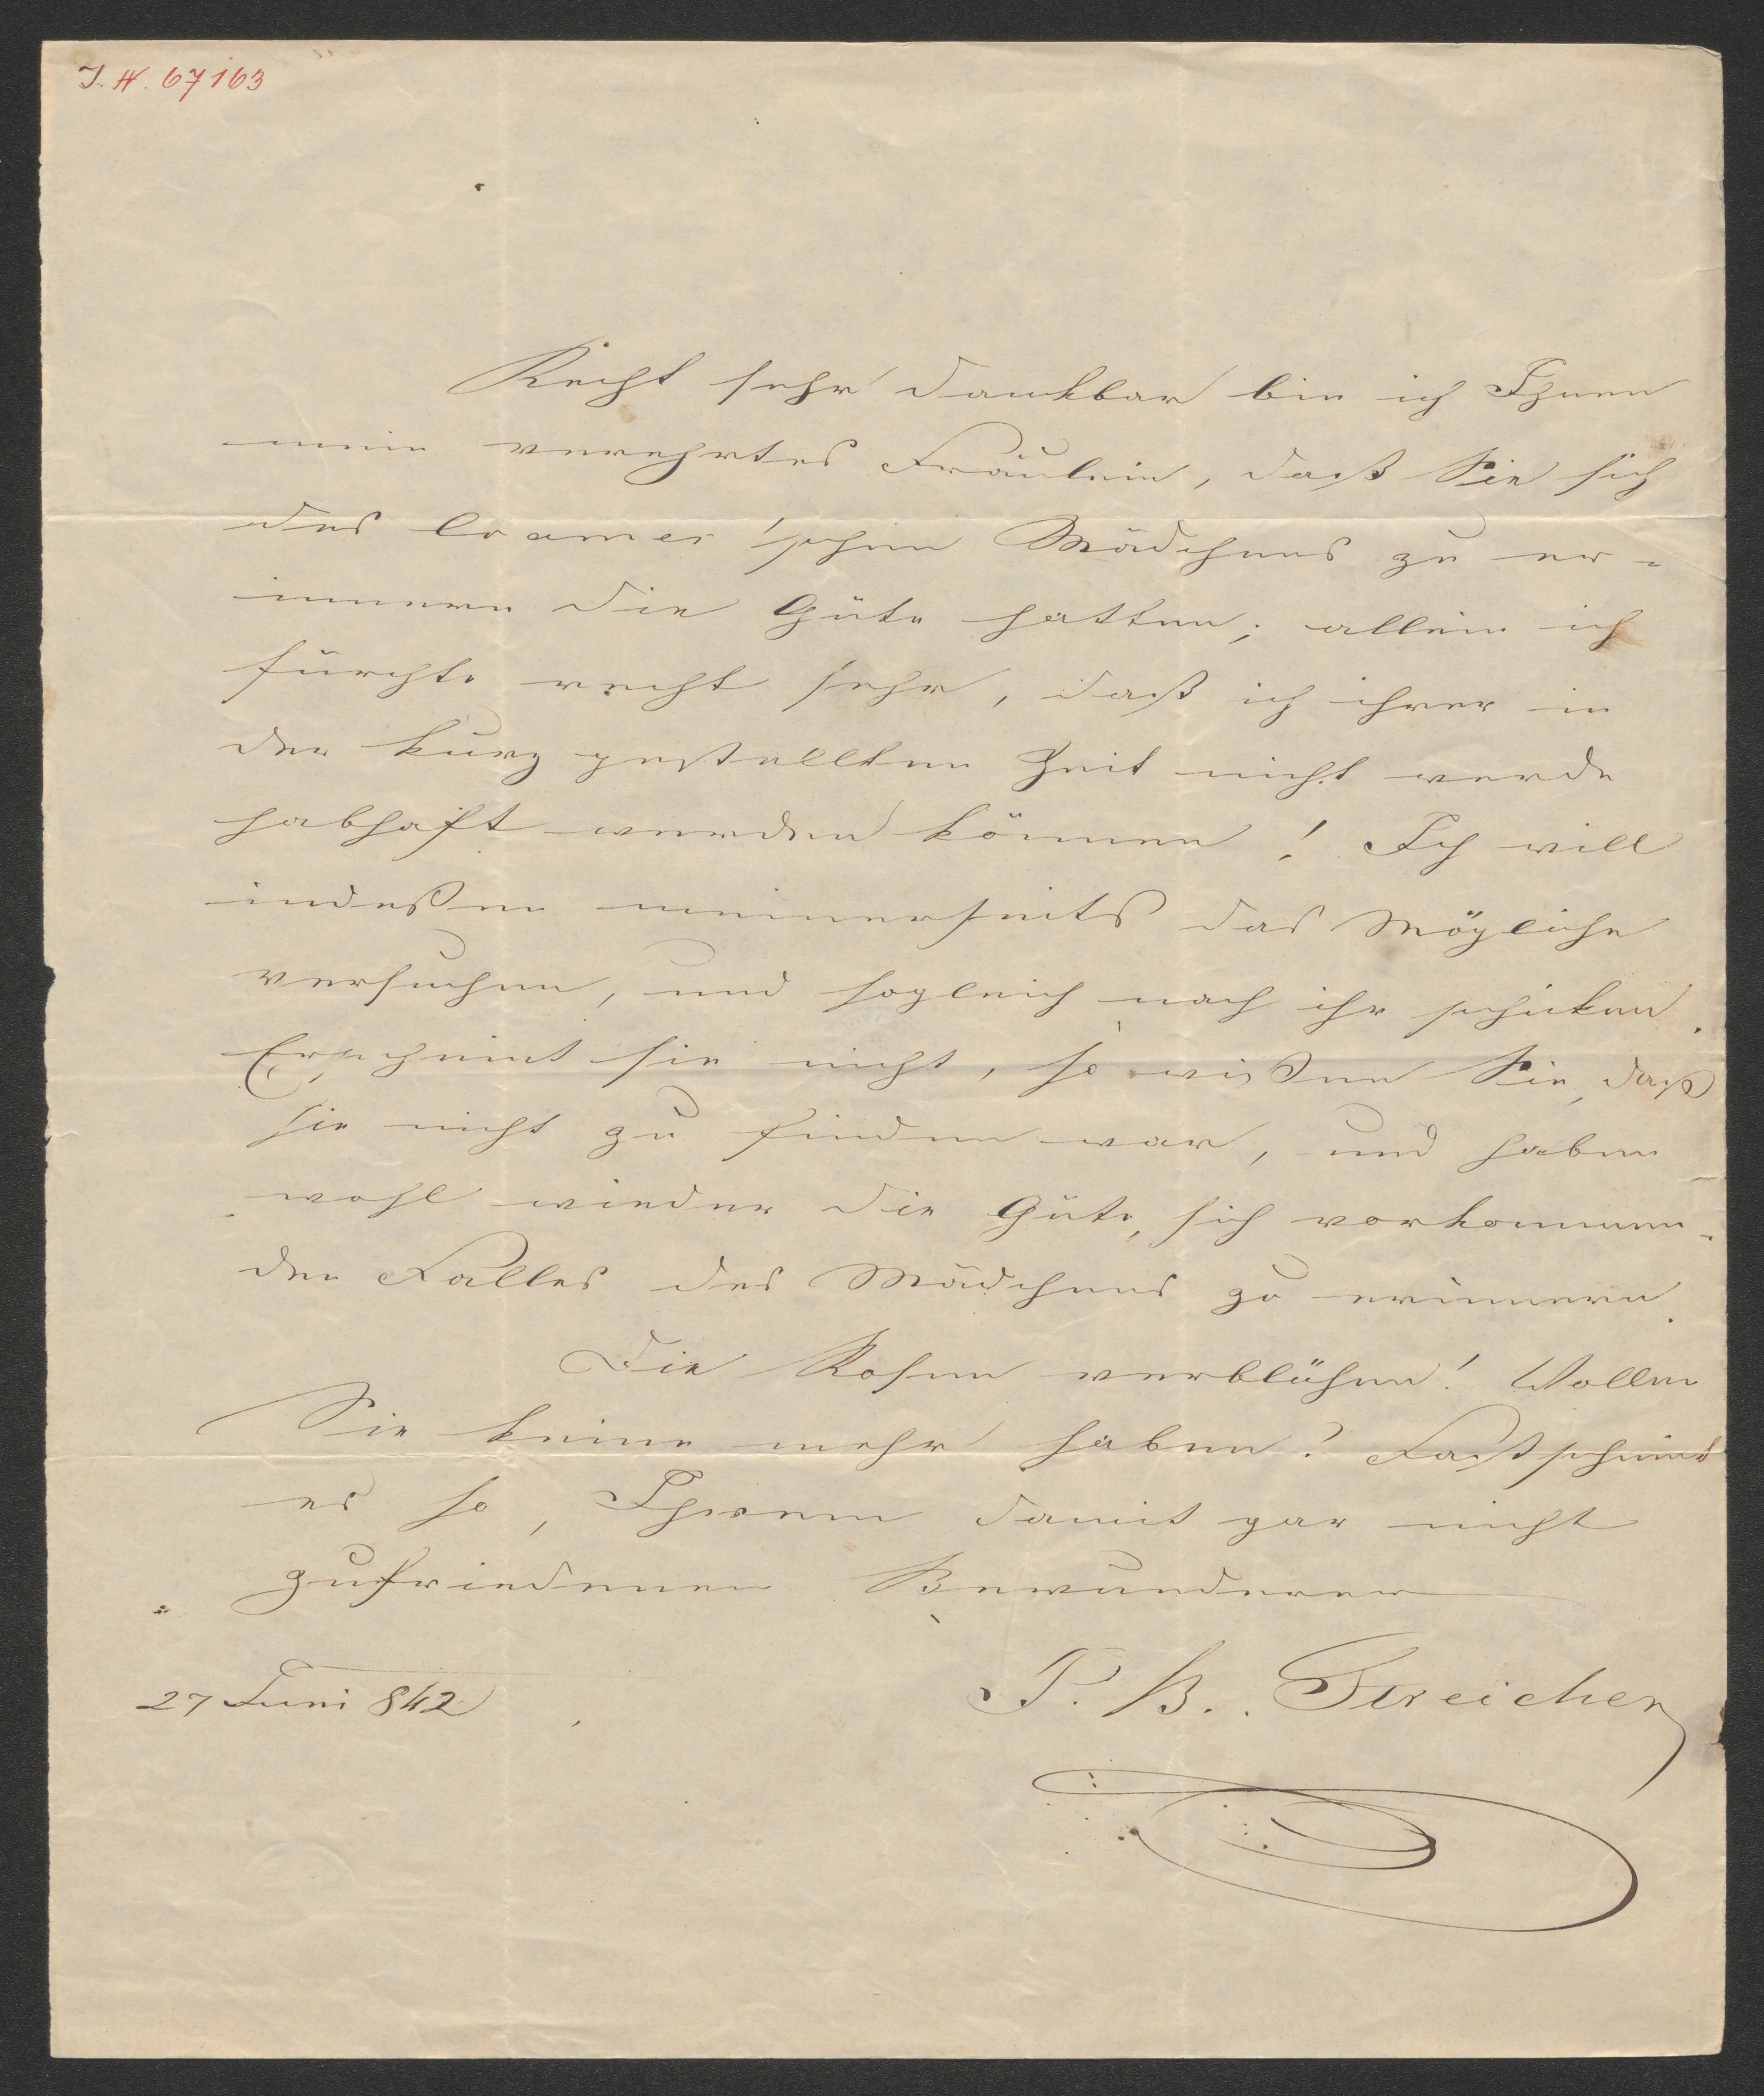 J. N. 67163
Recht sehr dankbar bin ich Ihnen
mein verehrtes Fräulein, daß Sie sich
des Cramer'schen Mädchens zu er-
innern die Güte hatten; allein ich
fürchte recht sehr, daß ich ihrer in
der kurz gestellten Zeit nicht werde
habhaft werden können! Ich will
indeßen meinerseits das Mögliche
versuchen, und sogleich nach ihr schicken.
Erscheint sie nicht, so wißen Sie, daß
sie nicht zu finden war, und haben
wohl wieder die Güte, sich vorkommen-
den Falles des Mädchens zu erinnern.
Die Rosen verblühen! Wollen
Sie keine mehr haben? Fast scheint
es so, Ihrem damit gar nicht
zufriedenen Bewunderer
27 Juni 842
J. B. Streicher